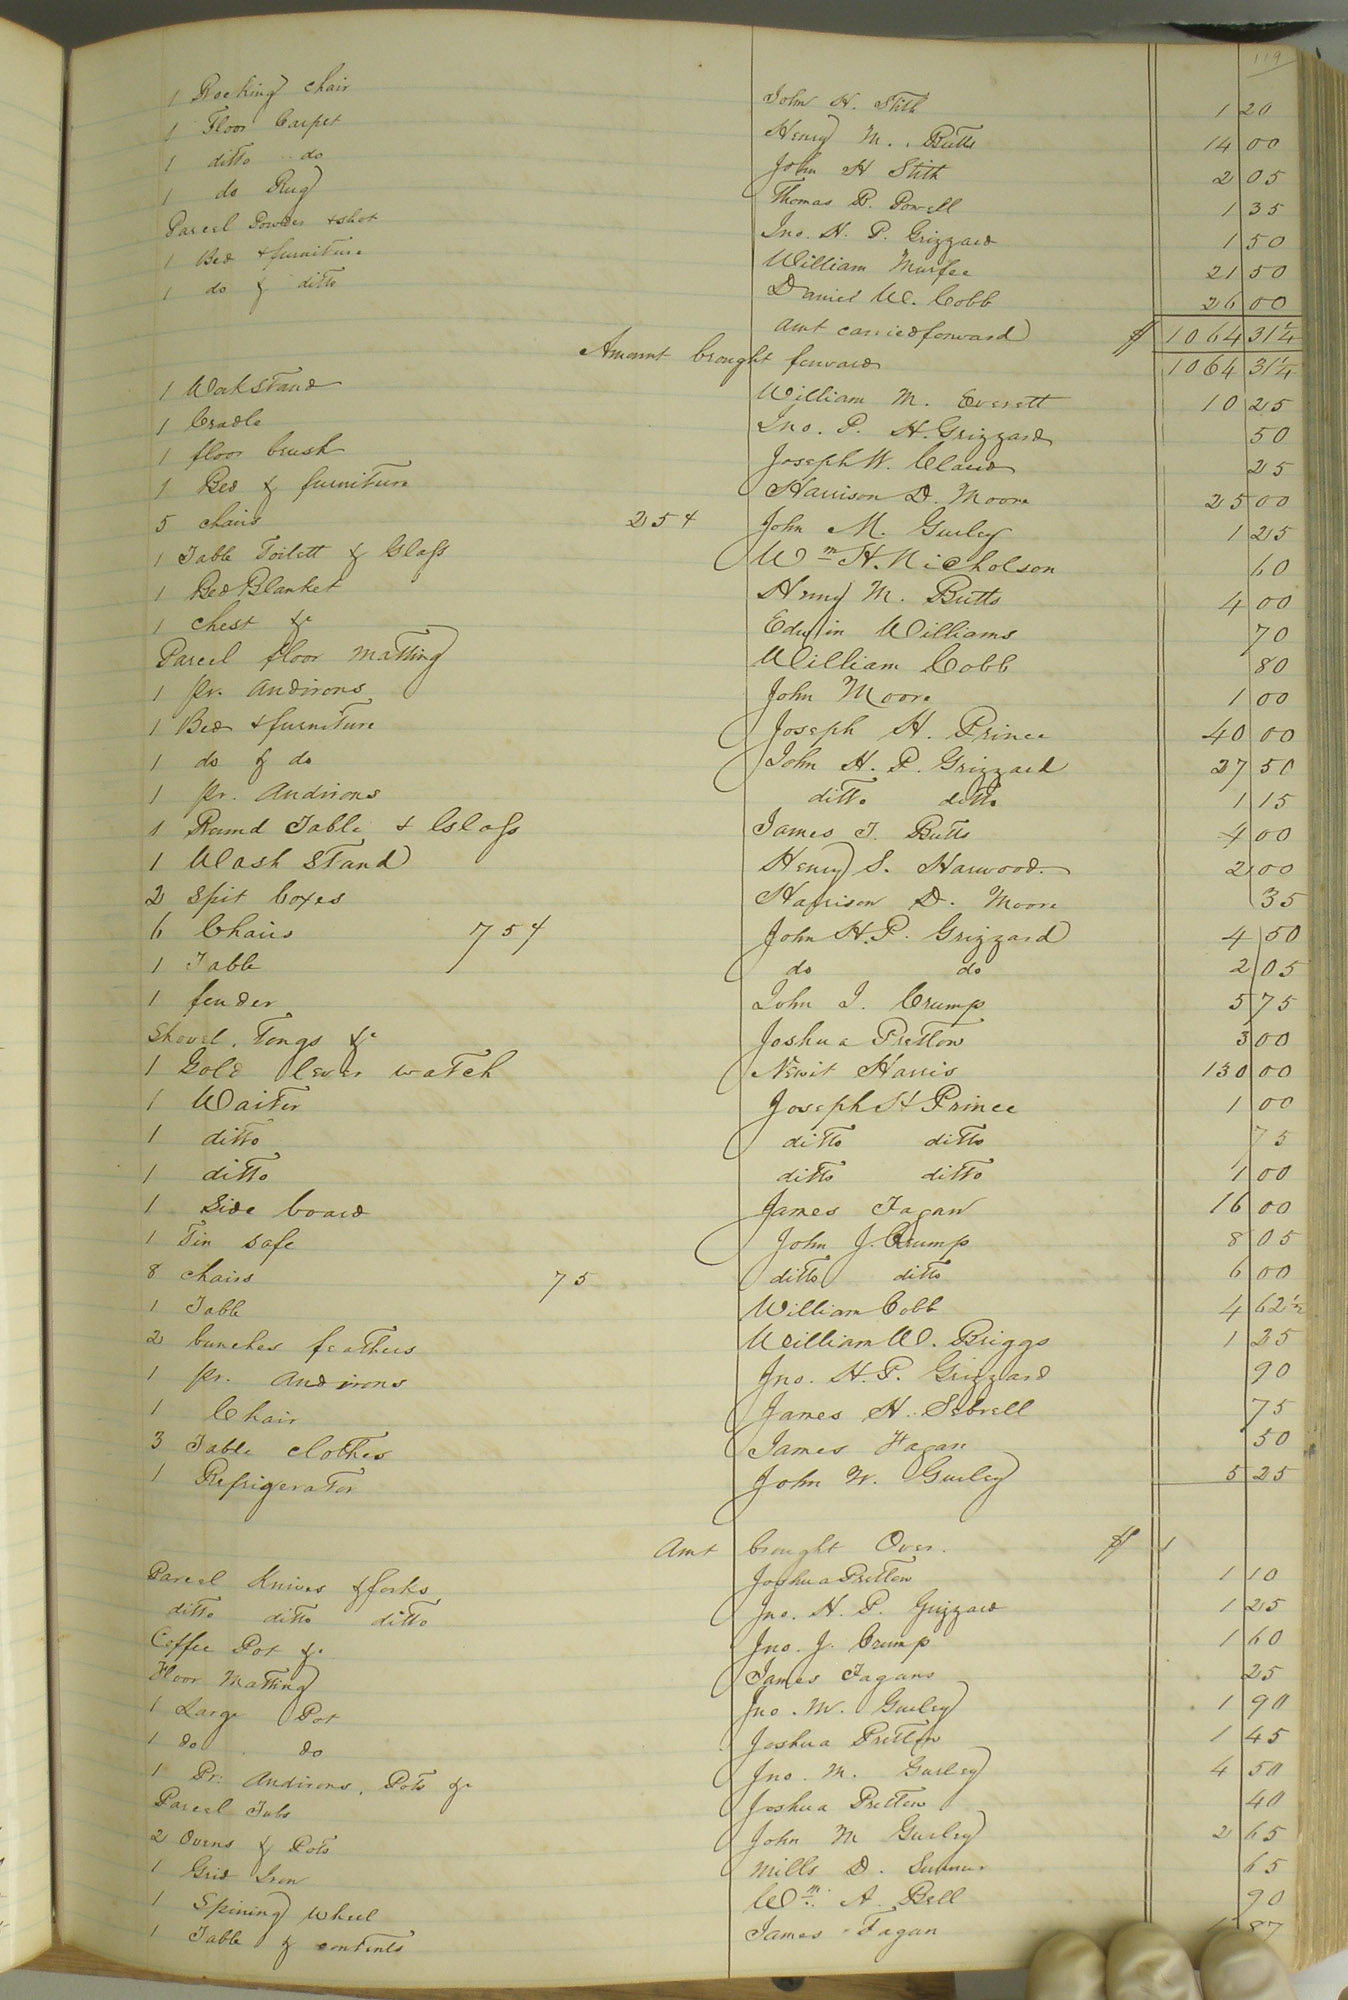 119
1 Rocking chair John H. Stith 1 20
1 Floor Carpet Henry M. Butts 14 00
1 ditto do John H Stith 2 05
1 do Rug Thomas B. Powell 1 35
Parcel Powder & shot Jno. H. P. Grizzard 1 50
1 Bed & furniture William Murfee 21 50
1 do & ditto Daniel W. Cobb 26 00
Amt carried forward $ 1064 31 1/4
Amount brought forward 1064 31 1/4
1 Wakstand William M. Everett 10 25
1 Cradle Jno. P. H. Grizzard 50
1 floor brush Joseph W. Claud 25
1 Bed & furniture Harrison D. Moore 25 00
5 chairs 25 ¢ John M. Gurley 1 25
1 Table Toilett & Glass Wm H. Nicholson 60
1 Bed Blanket Henry M. Butts 4 00
1 chest &c Edwin Williams 70
Parcel floor matting William Cobb 80
1 pr. Andirons John Moore 1 00
1 Bed & furniture Joseph H. Prince 40 00
1 do & do John H. P. Grizzard 27 50
1 pr. Andirons ditto ditto 1 15
1 Round Table & Glass James J. Butts 4 00
1 Wash Stand Henry S. Harwood 2 00
2 Spit boxes Harrison D. Moore 35
6 Chairs 75 ¢ John H. P. Grizzard 4 50
1 Table do do 2 05
1 fender John J. Crump 5 75
Shovel, Tongs &c Joshua Pretlow 3 00
1 Gold lever watch Newit Harris 130 00
1 Waiter Joseph H Prince 1 00
1 ditto ditto ditto 75
1 ditto ditto ditto 1 00
1 Side board James Fagan 16 00
1 Tin safe John J. Crump 8 05
8 chairs 75 ditto ditto 6 00
1 Table William Cobb 4 62 1/2
2 bunches feathers William W. Briggs 1 25
1 pr. Andirons Jno. H. P. Grizzard 90
1 Chair James H. Sebrell 75
3 Table clothes James Fagan 50
1 Refrigerator John W. Gurley 5 25
Amt brought Over. $ 1
Parcel Knives & forks Joshua Pretlow 1 10
ditto ditto ditto Jno. H. P. Grizzard 1 25
Coffee Pot &c Jno. J. Crump 1 60
Floor Matting James Fagans 25
1 Large Pot Jno. M. Gurley 1 90
1 do do Joshua Pretlow 1 45
1 Pr. Andirons, Pots &c Jno. M. Gurley 4 50
Parcel Tubs Joshua Pretlow 40
2 Ovens & Pots John M Gurley 2 65
1 Grid Iron Mills D. 65
1 Spining wheel Wm. A. Bell 90
1 Table & contents James Fagan 87